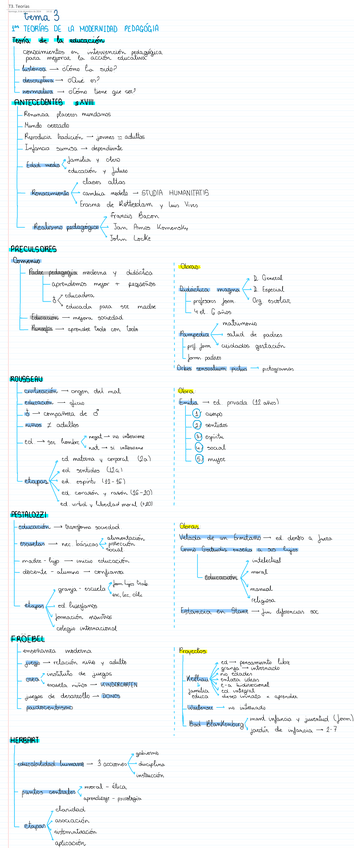 T3. Teorías
tema 3
1eras TEORÍAS DE LA MODERNIDAD PEDAGÓGIA
Teoría de la educación
conocimientos en intervención pedagógica
para mejorar la acción educativa
histórica → ¿Cómo ha sido?
descriptiva → ¿Qué es?
normativa → ¿Cómo tiene que ser?
ANTECEDENTES sXVIII
Renuncia placeres mundanos
Mundo cerrado
Reproducir tradición → jóvenes = adultos
Infancia sumisa → dependiente
Edad media
familia y clero
educación y futuro
Renacimiento
clases altas
cambia modelo → STUDIA HUMANITATIS
Erasmo de Rotterdam y Luis Vives
Realismo pedagógico
Francis Bacon
Jan Amos Komensky
John Locke
PRECULSORES
Comenio
Padre pedagogía moderna y didáctica
aprendemos mejor + pequeños
educadora
educada para ser madre
Educación → mejora sociedad
aprender todo con todo
Obras
Didáctica magna
D. General
D. Especial
Org. escolar
profesores form
4 et. 6 años
Pampedia
matrimonio
salud de padres
cuidados gestación
prof form
form padres
Orbis sensualium pictus → pictogramas
ROUSSEAU
civilización → origen del mal
educación → oficio
♀ → compañera de ♂
niños ≠ adultos
ed → ser hombre
negat → no interviene
nat → sí interviene
etapas
ed materna y corporal (2a)
ed sentidos (12a)
ed espíritu (12-15)
ed corazón y razón (15-20)
ed virtud y libertad moral (+20)
Obra
Emilio → ed. privada (12 años)
1 cuerpo
2 sentidos
3 espíritu
4 social
5 mujer
PESTALOZZI
educación → transforma sociedad
escuelas → nec básicas
alimentación
protección
social
madre-hijo → inicio educación
docente - alumno → confianza
etapas
granja - escuela
ed huérfanos
formación maestros
colegio internacional
Obras
Velada de un Ermitaño → ed dentro a fuera
Como Gertrudis enseña a sus hijos
Educación
intelectual
moral
manual
religiosa
Estancia en Stans → sin diferencias soc
FRÖEBEL
enseñanza moderna
juego → relación niño y adulto
crea
instituto de juegos
escuela niños → KINDERGARTEN
juegos de desarrollo → DONES
paidocentrismo
Proyectos
Keilhau
ed → pensamiento libre
granja → internado
no edades
enlaza ideas
e-a bidireccional
familia
ed integral
educa
deseo innato → aprender
→ no internado
Bad Blankenburg
jardín de infancia → 1-7
HERBART
educabilidad humana → 3 acciones
gobierno
disciplina
instrucción
puntos centrales
moral - ética
aprendizaje - psicología
etapas
claridad
asociación
sistematización
aplicación